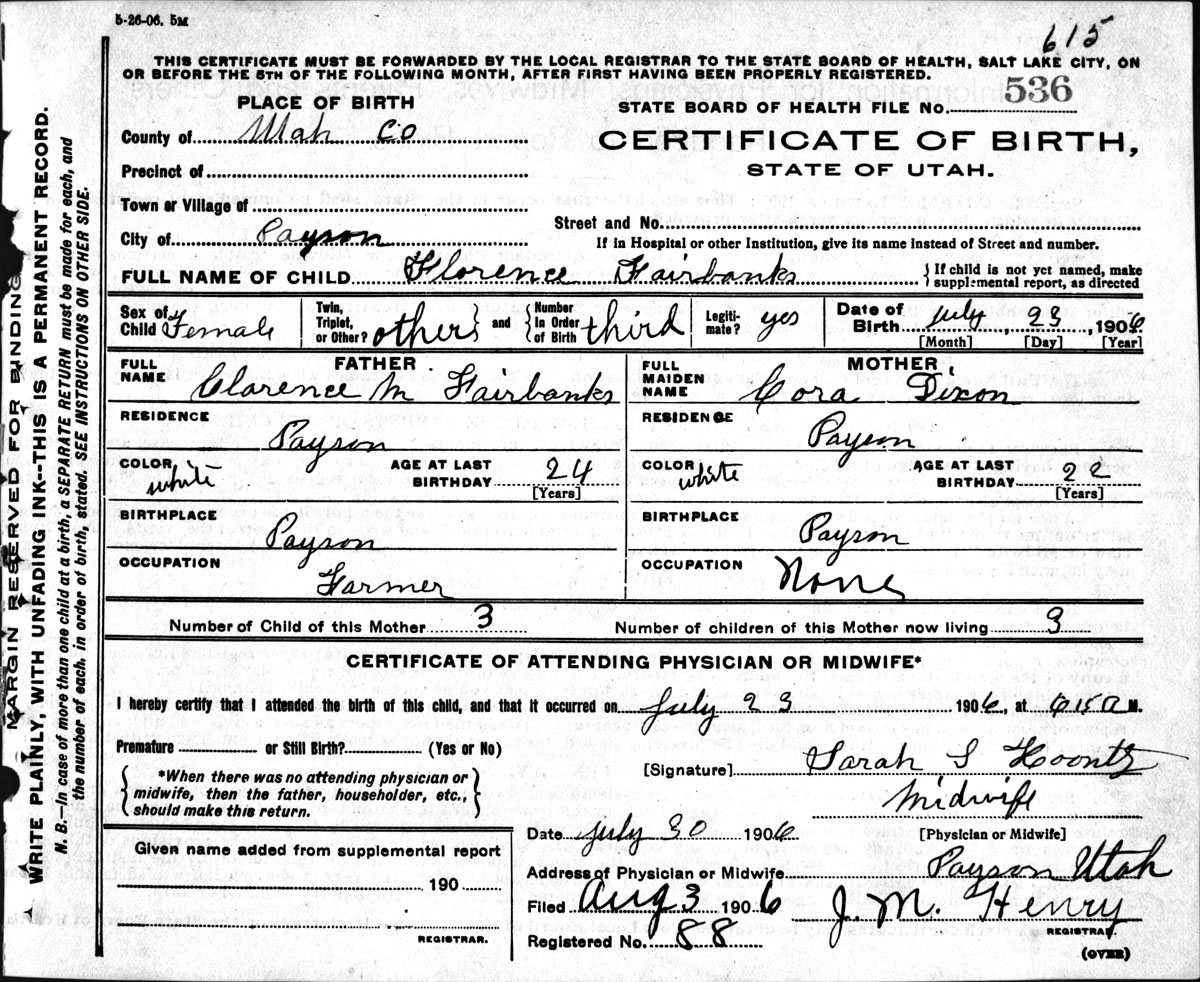 5-26-06. 5M
615
THIS CERTIFICATE MUST BE FORWARDED BY THE LOCAL REGISTRAR TO THE STATE BOARD OF HEALTH, SALT LAKE CITY, ON
OR BEFORE THE 5TH OF THE FOLLOWING MONTH, AFTER FIRST HAVING BEEN PROPERLY REGISTERED.
PLACE OF BIRTH
STATE BOARD OF HEALTH FILE No. 536
County of Utah Co
CERTIFICATE OF BIRTH,
STATE OF UTAH.
Precinct of
Town or Village of
Street and No.
City of Payson
If in Hospital or other Institution, give its name instead of Street and number.
FULL NAME OF CHILD Florence Fairbanks { If child is not yet named, make supplemental report, as directed
Sex of Child Female
Twin, Triplet, or Other? other } and { Number in Order of Birth third
Legitimate? yes
Date of Birth July 23, 1906
[Month] [Day] [Year]
FATHER
FULL NAME Clarence M Fairbanks
RESIDENCE
Payson
COLOR white
AGE AT LAST BIRTHDAY 24
[Years]
BIRTHPLACE
Payson
OCCUPATION
Farmer
MOTHER
FULL MAIDEN NAME Cora Dixon
RESIDENCE
Payson
COLOR white
AGE AT LAST BIRTHDAY 22
[Years]
BIRTHPLACE
Payson
OCCUPATION
None
Number of Child of this Mother 3
Number of children of this Mother now living 3
CERTIFICATE OF ATTENDING PHYSICIAN OR MIDWIFE*
I hereby certify that I attended the birth of this child, and that it occurred on July 23 1906, at 615 A M.
Premature or Still Birth? (Yes or No)
{ *When there was no attending physician or
midwife, then the father, householder, etc.,
should make this return. }
[Signature] Sarah S Koontz
Midwife
[Physician or Midwife]
Given name added from supplemental report
190
REGISTRAR.
Date July 30 1906
Address of Physician or Midwife Payson Utah
Filed Aug 3 1906 J. M. Henry
REGISTRAR.
Registered No. 88
(OVER)
MARGIN RESERVED FOR BINDING
WRITE PLAINLY, WITH UNFADING INK--THIS IS A PERMANENT RECORD.
N. B.—In case of more than one child at a birth, a SEPARATE RETURN must be made for each, and
the number of each, in order of birth, stated. SEE INSTRUCTIONS ON OTHER SIDE.